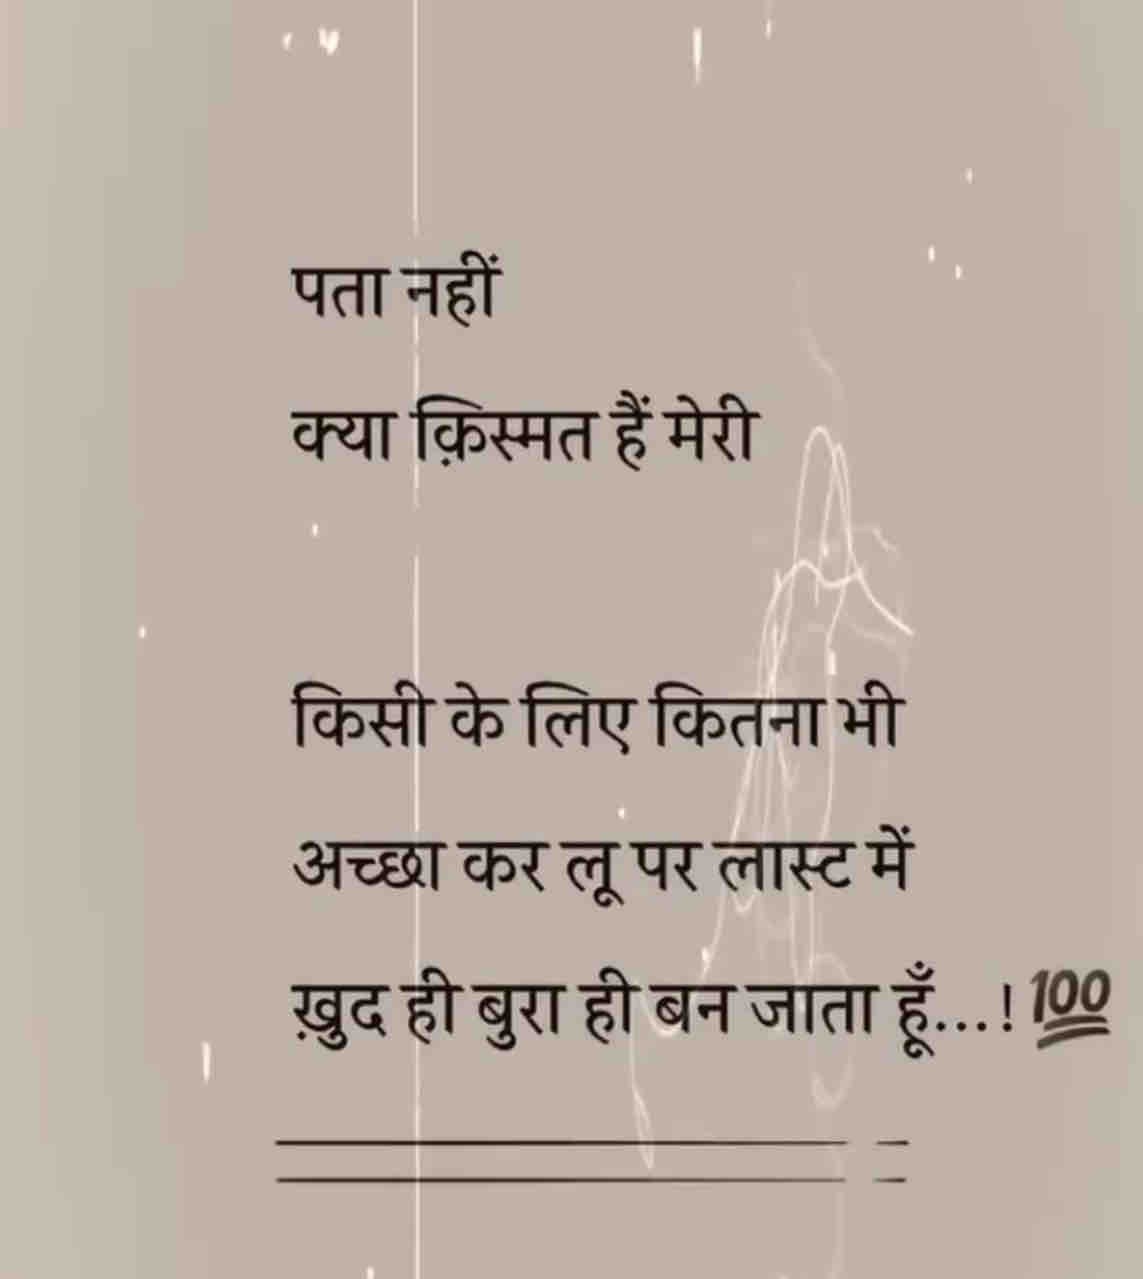 पता नहीं
क्या क़िस्मत हैं मेरी
किसी के लिए कितना भी
अच्छा कर लू पर लास्ट में
ख़ुद ही बुरा ही बन जाता हूँ...! 💯